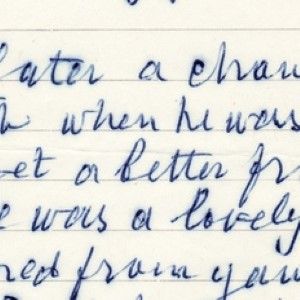 later a chan
when he was
et a better fr
e was a lovely
red from yau